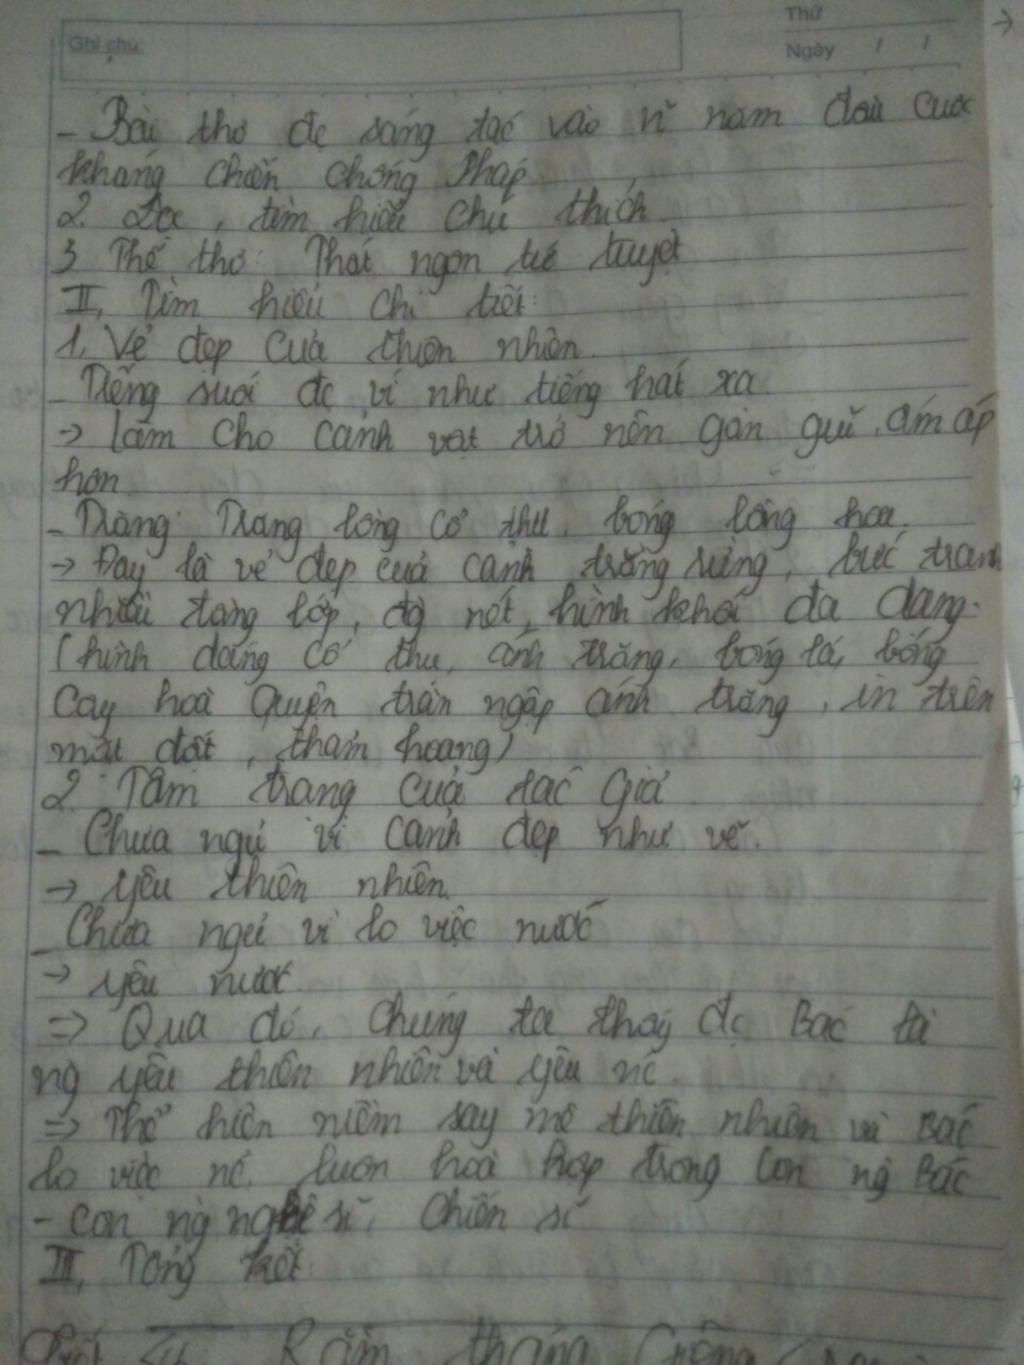 Ghi chú:
Thứ
Ngày / /
- Bài thơ đc sáng tác vào n~ năm đầu cuộc
kháng chiến chống Pháp
2. Đọc, tìm hiểu chú thích
3 Thể thơ: Thất ngôn tứ tuyệt
II, Tìm hiểu chi tiết:
1, Vẻ đẹp của thiên nhiên
- Tiếng suối đc ví như tiếng hát xa
→ làm cho cảnh vật trở nên gần gũi, ấm áp
hơn
- Trăng: Trăng lồng cổ thụ, bóng lồng hoa.
→ Đây là vẻ đẹp của cảnh trăng rừng, bức tranh
nhiều tầng lớp, đg nét, hình khối đa dạng.
(hình dáng cổ thụ, ánh trăng, bóng lá, bóng
cây hoà quyện tràn ngập ánh trăng, in trên
mặt đất, thảm hoang)
2. Tâm trạng của tác giả
- Chưa ngủ vì cảnh đẹp như vẽ.
→ yêu thiên nhiên.
- Chưa ngủ vì lo việc nước
→ yêu nước
=> Qua đó, chúng ta thấy đc Bác là
ng yêu thiên nhiên và yêu nc.
=> Thể hiện niềm say mê thiên nhiên và Bác
lo việc nc, luôn hoà hợp trong con ng Bác
- con ng nghệ sĩ, chiến sĩ
III, Tổng kết:
Rằm tháng Giêng